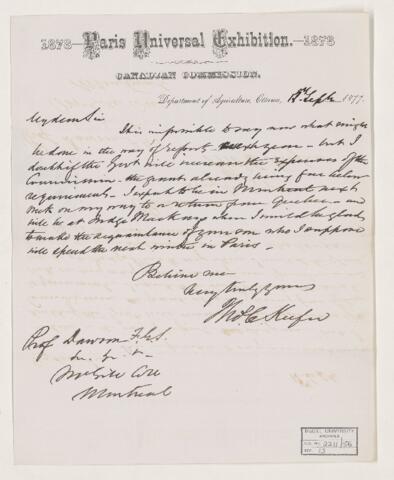 1878—Paris Universal Exhibition.—1878
CANADIAN COMMISSION.
Department of Agriculture, Ottawa, 18th Sept 1877
My dear Sir
It is impossible to say now what might
be done in the way of reports next year – but I
doubt if the Govt will increase the expenses of the
Commission – the grant already being far below
requirements. I expect to be in Montreal next
week on my way to & return from Quebec – and
will be at Judge Mackay when I would be glad
to make the acquaintance of your son who I suppose
will spend the next winter in Paris –
Believe me
Very truly yours
Thos C. Keefer
Prof Dawson F.G.S.
&c. &c. &c.
McGill Coll
Montreal
McGILL UNIVERSITY
ARCHIVES
ACC. NO. 2211/56
REF. 13